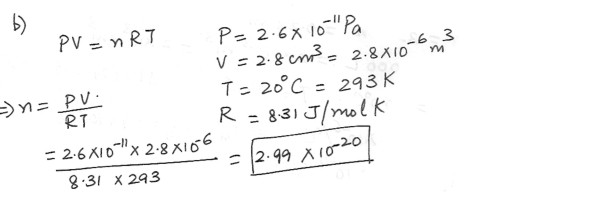 b)
PV = nRT
P = 2.6 x 10⁻¹¹ Pa
V = 2.8 cm³ = 2.8x10⁻⁶ m³
T = 20°C = 293 K
R = 8.31 J/mol K
=> n = PV/RT
= 2.6x10⁻¹¹ x 2.8x10⁻⁶ / 8.31 x 293 = 2.99 x10⁻²⁰